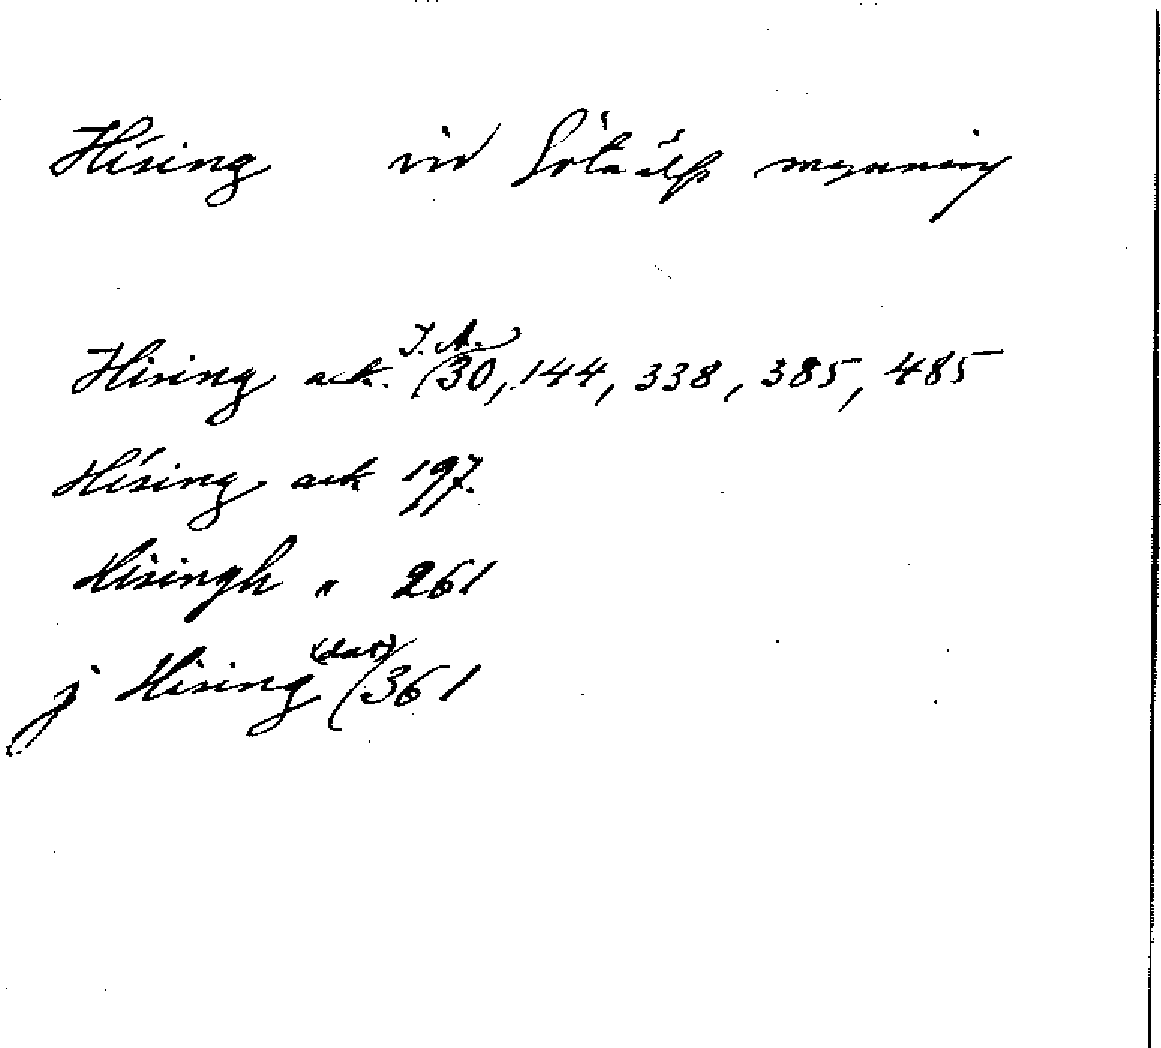 Hising vid Götaälfs mynning
J. A.
Hising ack. 30, 144, 338, 385, 485
Hísing ack 197.
Hisingh " 261
(dat)
j Hising 361